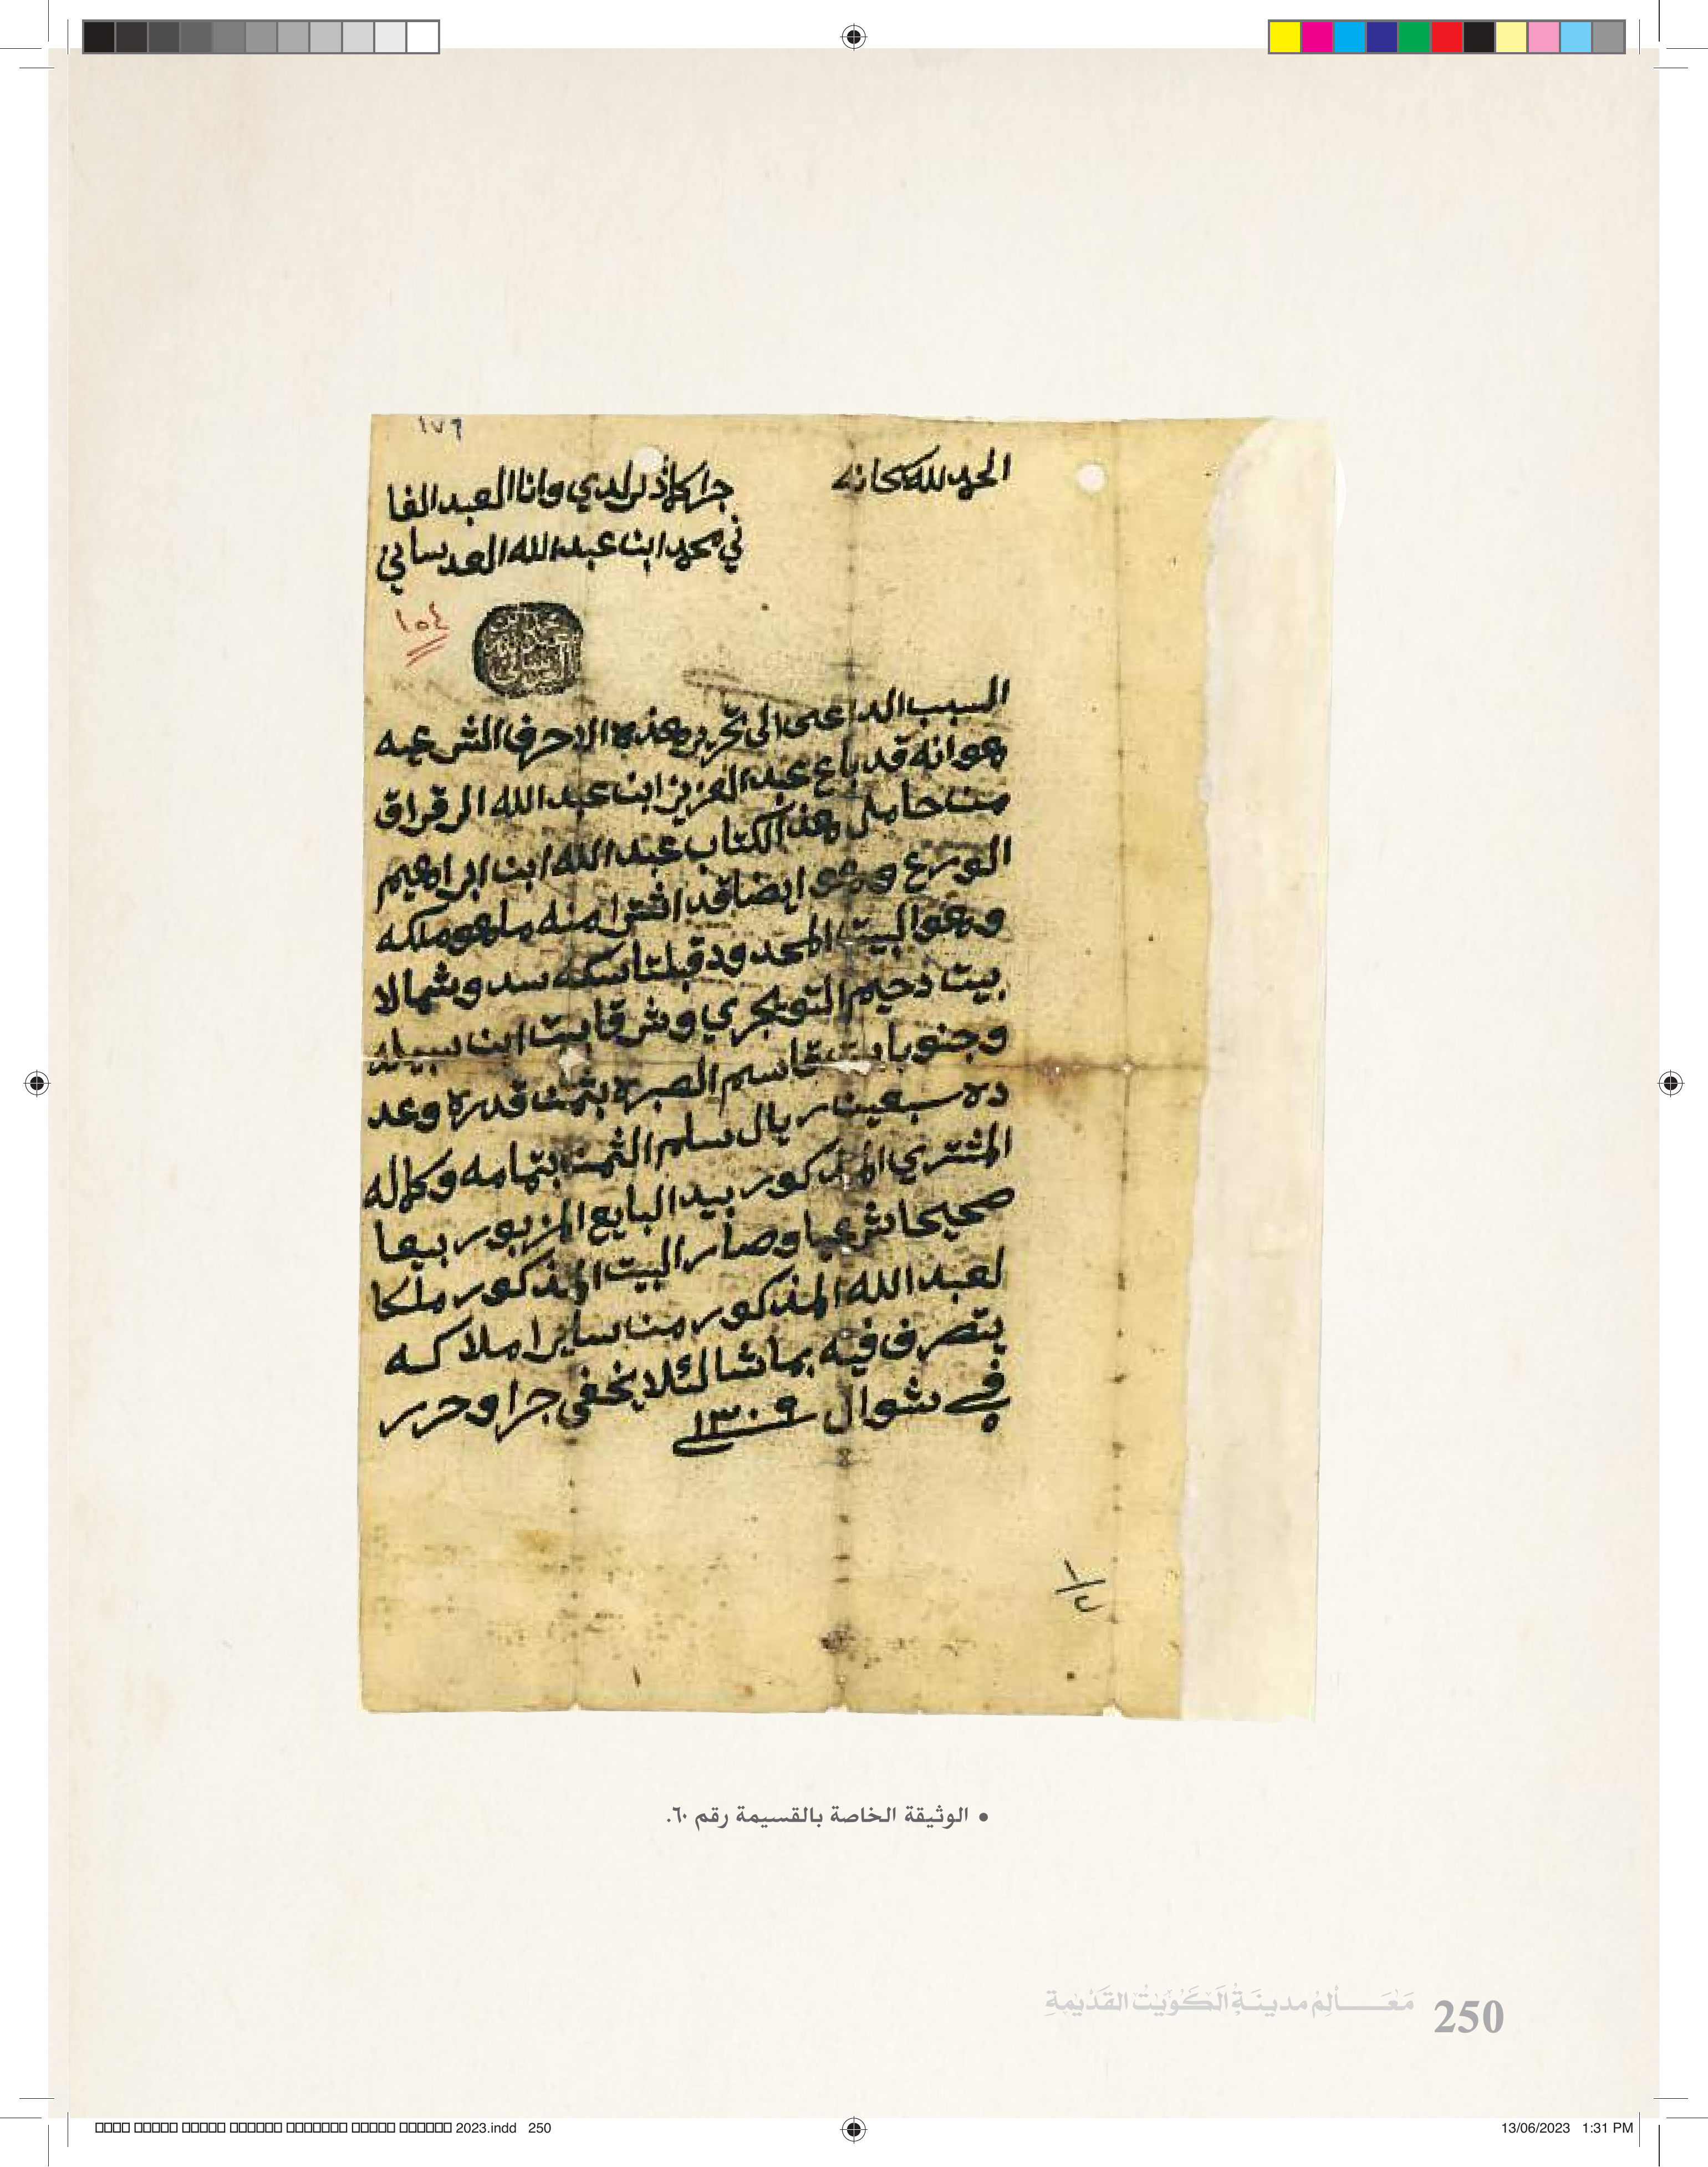 ١٧٦
الحمد لله سبحانه
جرا كما ذكر لدي وانا العبد الفا
ني محمد ابن عبدالله العدساني
١٥٤
السبب الداعي الى تحرير هذه الاحرف الشرعيه
هو انه قد باع عبد العزيز ابن عبد الله الرقراق
من حامل هذا الكتاب عبد الله ابن ابراهيم
الورع وهو ايضا قد اشترا منه ما هو ملكه
وهو البيت المحدود قبلتا سكه سد وشمالا
بيت دحيم التويجري وشرقا بيت ابن سبيله
وجنوبا بيت قاسم الصبره بثمن قدره وعد
ده سبعين ريال سلم الثمن بتمامه وكماله
المشتري المذكور بيد البايع المزبور بيعا
صحيحا شرعيا وصار البيت المذكور ملكا
لعبد الله المذكور من ساير املاكه
يتصرف فيه بما شا لئلا يخفى جرا وحرر
في ٥ شوال ١٣٠٩
١/٢
• الوثيقة الخاصة بالقسيمة رقم ٦٠.
مَعَالِمُ مدينَةِ الكُوَيْتِ القَدِيمَةِ 250
2023.indd 250
13/06/2023 1:31 PM